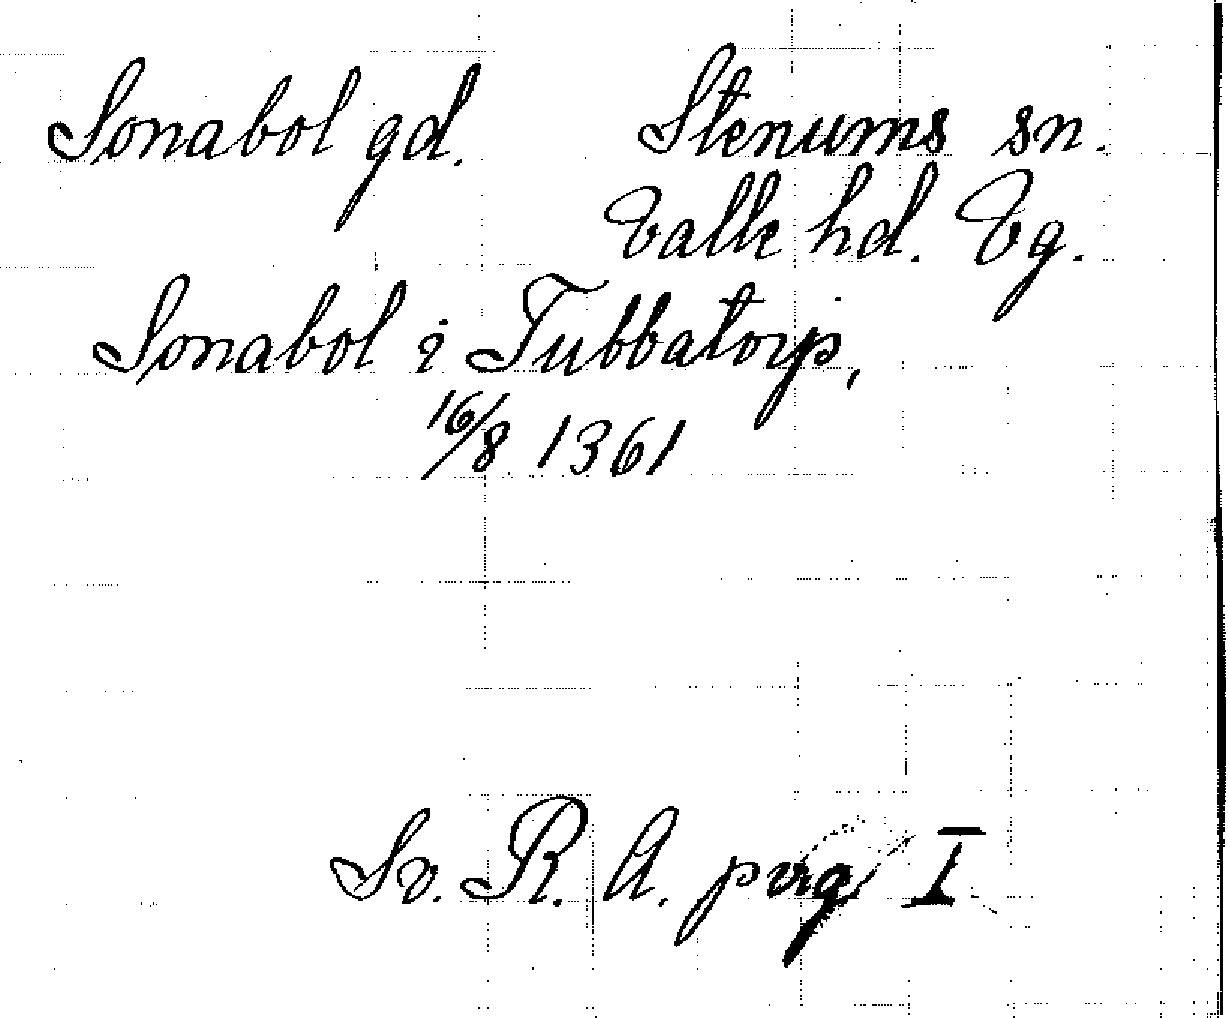 Sonabol gd. Stenums sn.
Valle hd. Vg.
Sonabol i Tubbatorp,
16/8 1361
Sv. R. A. prg I